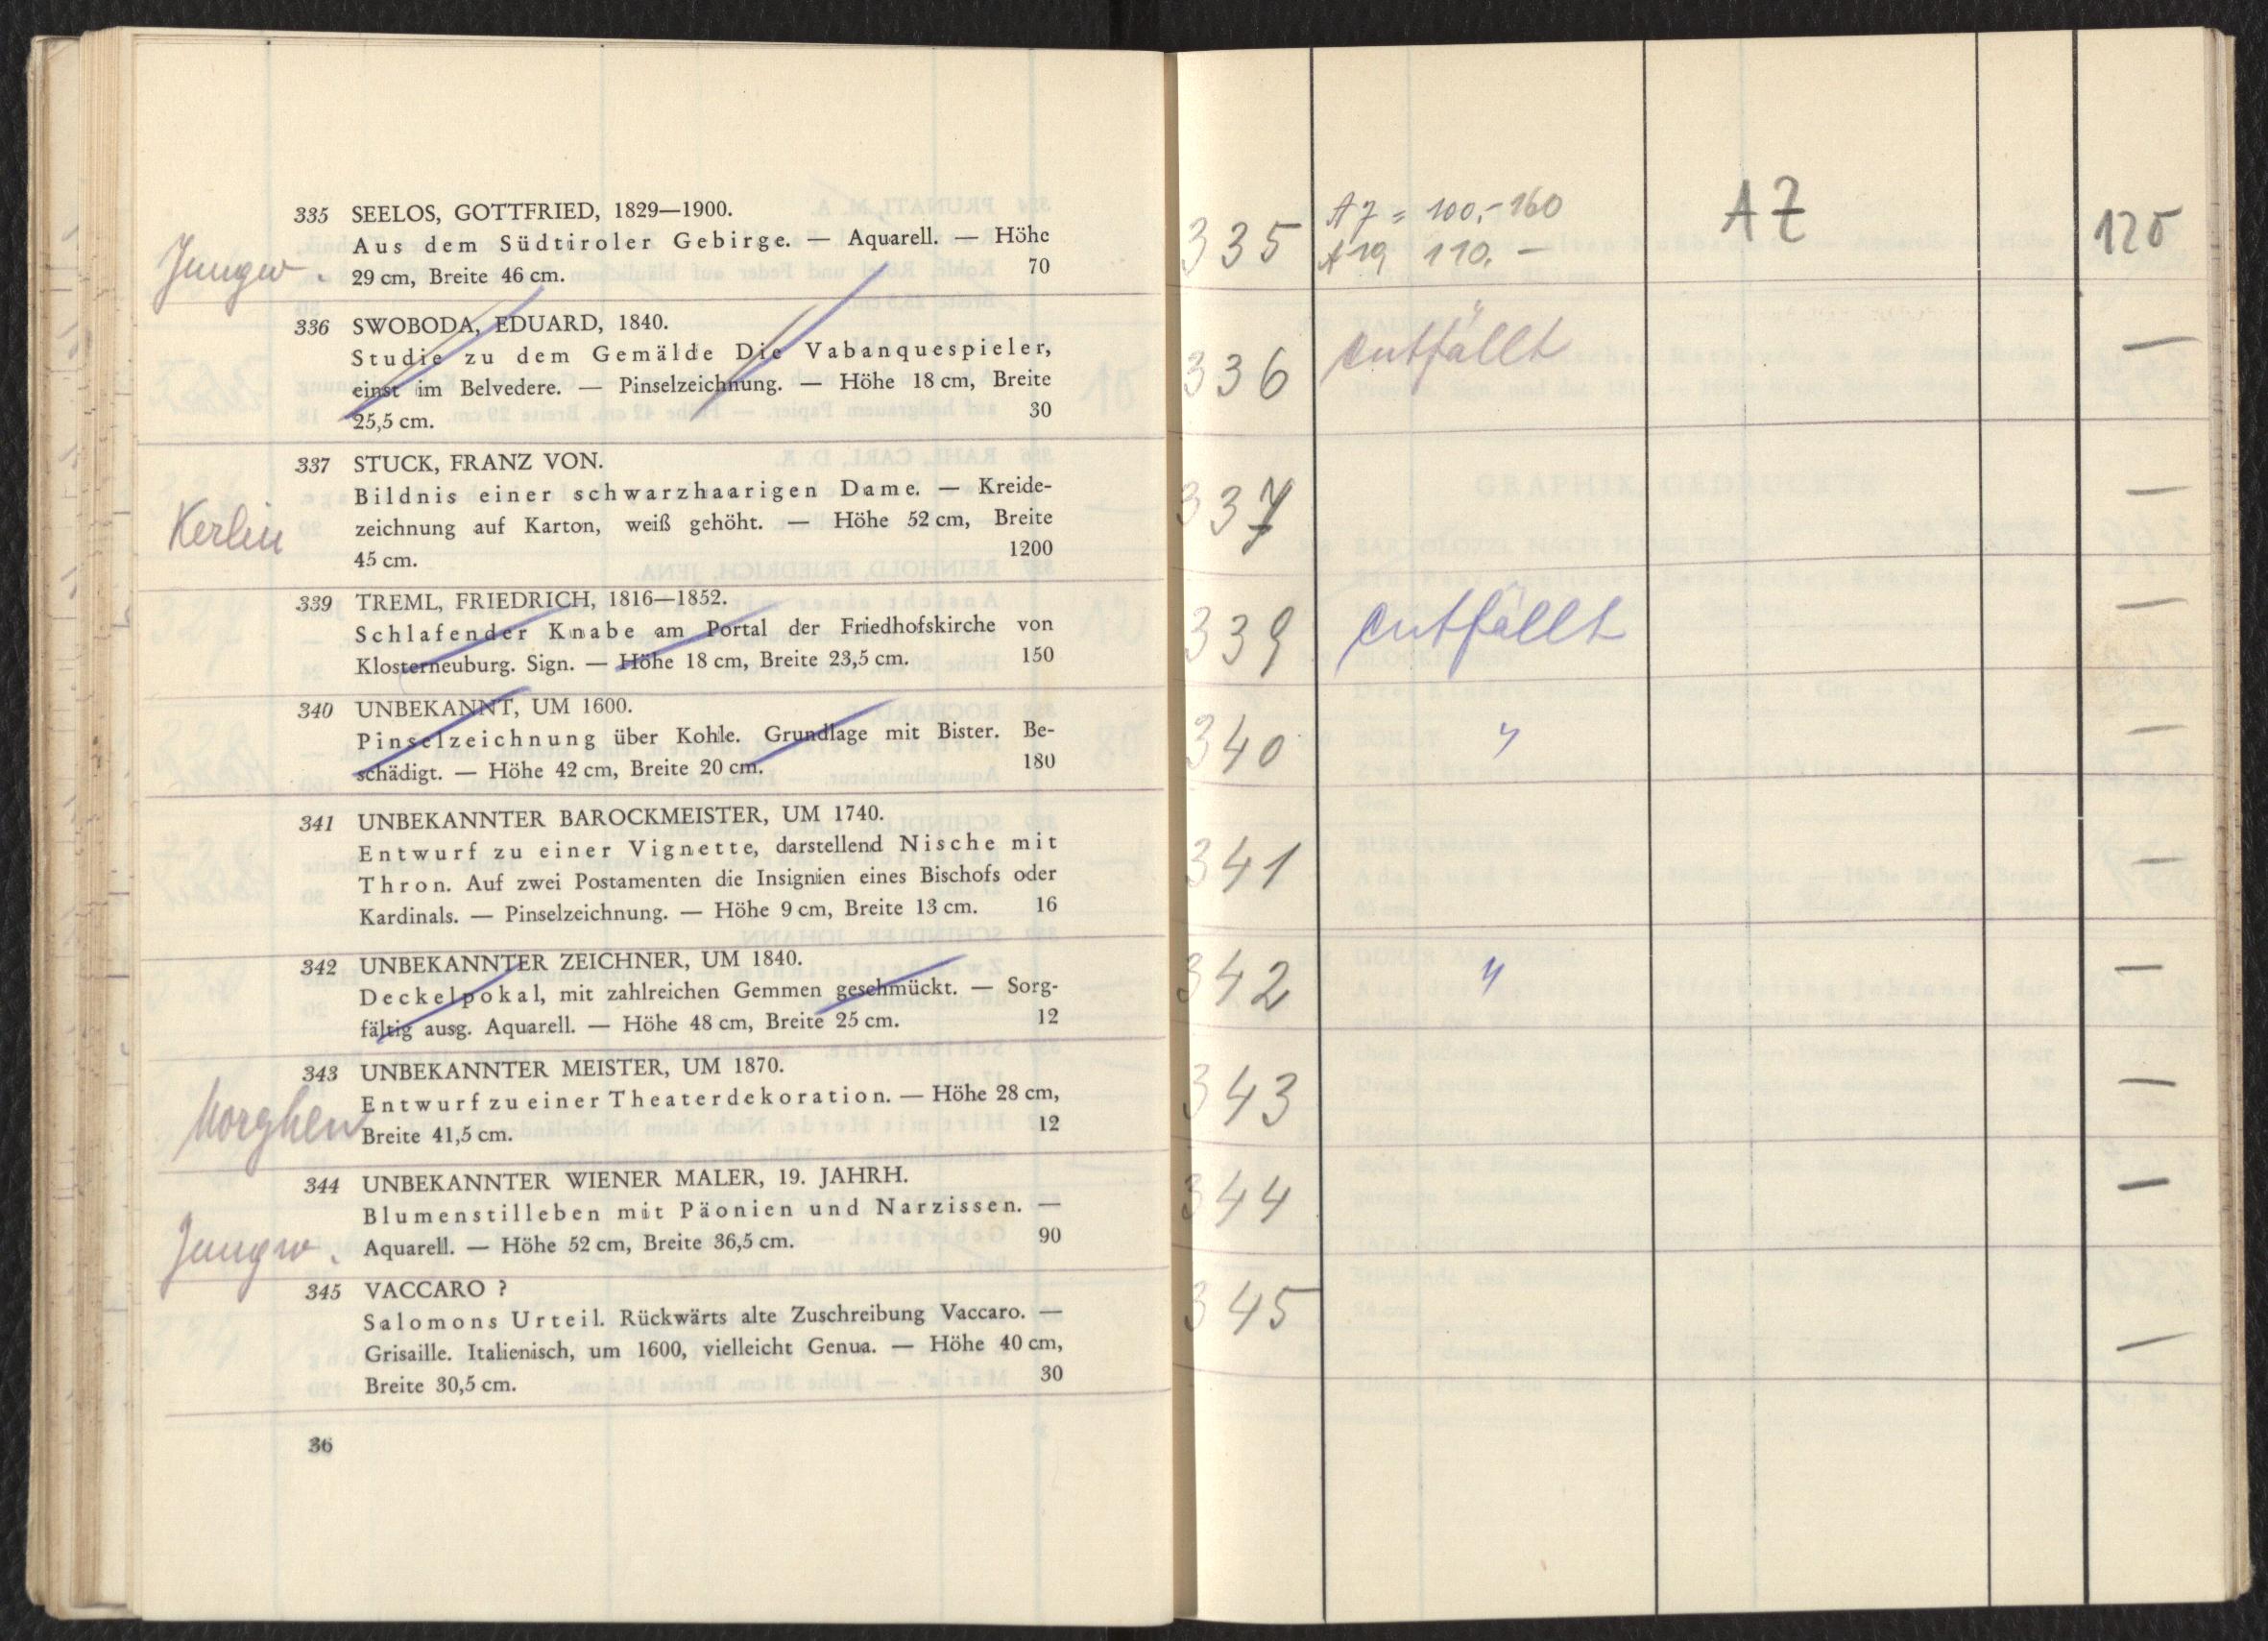 335 SEELOS, GOTTFRIED, 1829—1900.
Aus dem Südtiroler Gebirge. — Aquarell. — Höhe
29 cm, Breite 46 cm. 70
Jungw.
336 SWOBODA, EDUARD, 1840.
Studie zu dem Gemälde Die Vabanquespieler,
einst im Belvedere. — Pinselzeichnung. — Höhe 18 cm, Breite
25,5 cm. 30
337 STUCK, FRANZ VON.
Bildnis einer schwarzhaarigen Dame. — Kreide-
zeichnung auf Karton, weiß gehöht. — Höhe 52 cm, Breite
45 cm. 1200
Kerlin
339 TREML, FRIEDRICH, 1816—1852.
Schlafender Knabe am Portal der Friedhofskirche von
Klosterneuburg. Sign. — Höhe 18 cm, Breite 23,5 cm. 150
340 UNBEKANNT, UM 1600.
Pinselzeichnung über Kohle. Grundlage mit Bister. Be-
schädigt. — Höhe 42 cm, Breite 20 cm. 180
341 UNBEKANNTER BAROCKMEISTER, UM 1740.
Entwurf zu einer Vignette, darstellend Nische mit
Thron. Auf zwei Postamenten die Insignien eines Bischofs oder
Kardinals. — Pinselzeichnung. — Höhe 9 cm, Breite 13 cm. 16
342 UNBEKANNTER ZEICHNER, UM 1840.
Deckelpokal, mit zahlreichen Gemmen geschmückt. — Sorg-
fältig ausg. Aquarell. — Höhe 48 cm, Breite 25 cm. 12
343 UNBEKANNTER MEISTER, UM 1870.
Entwurf zu einer Theaterdekoration. — Höhe 28 cm,
Breite 41,5 cm. 12
Morghen
344 UNBEKANNTER WIENER MALER, 19. JAHRH.
Blumenstilleben mit Päonien und Narzissen. —
Aquarell. — Höhe 52 cm, Breite 36,5 cm. 90
Jungw.
345 VACCARO ?
Salomons Urteil. Rückwärts alte Zuschreibung Vaccaro. —
Grisaille. Italienisch, um 1600, vielleicht Genua. — Höhe 40 cm,
Breite 30,5 cm. 30
36
335 A7 = 100,- 160 A7 120
A19 110.—
336 entfällt —
337 —
339 entfällt —
340 " —
341 —
342 " —
343 —
344 —
345 —